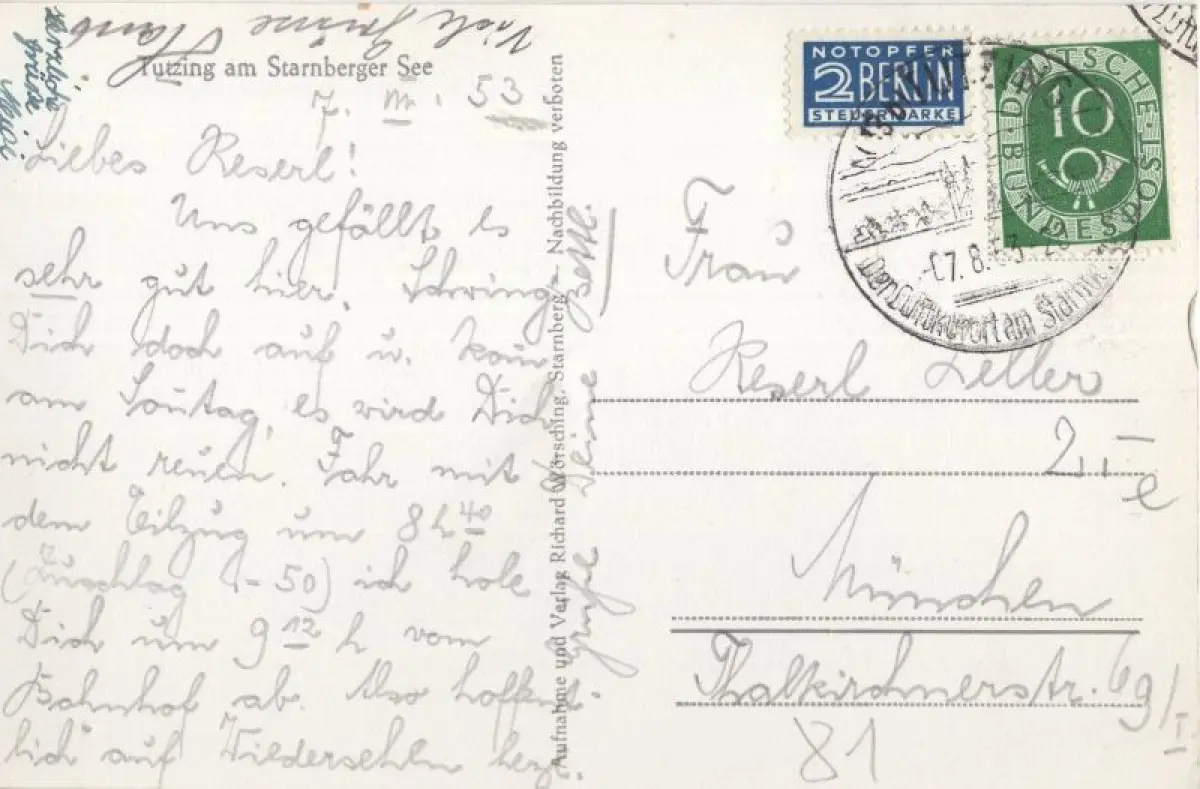 Viele Grüsse
herzliche
Grüsse
Tutzing am Starnberger See
7. VIII. 53
Liebes Reserl!
Uns gefällt es
sehr gut hier. Schwing
Dich doch auf u. kom
am Sontag, es wird Dich
nicht reuen. Fahr mit
dem Eilzug um 8 h 40
(Zuschlag -50) ich hole
Dich um 9 12 h vom
Bahnhof ab. Also hoffent-
lich auf Wiedersehen herzl.
Grüße Deine
Aufnahme und Verlag Richard Wörsching, Starnberg — Nachbildung verboten
NOTOPFER
2 BERLIN
STEUERMARKE
DEUTSCHE BUNDESPOST
10
TUTZING
-7.8.53
Der Luftkurort am Starnbe
Frau
Reserl Zeller
München
Thalkirchnerstr. 69/I
81